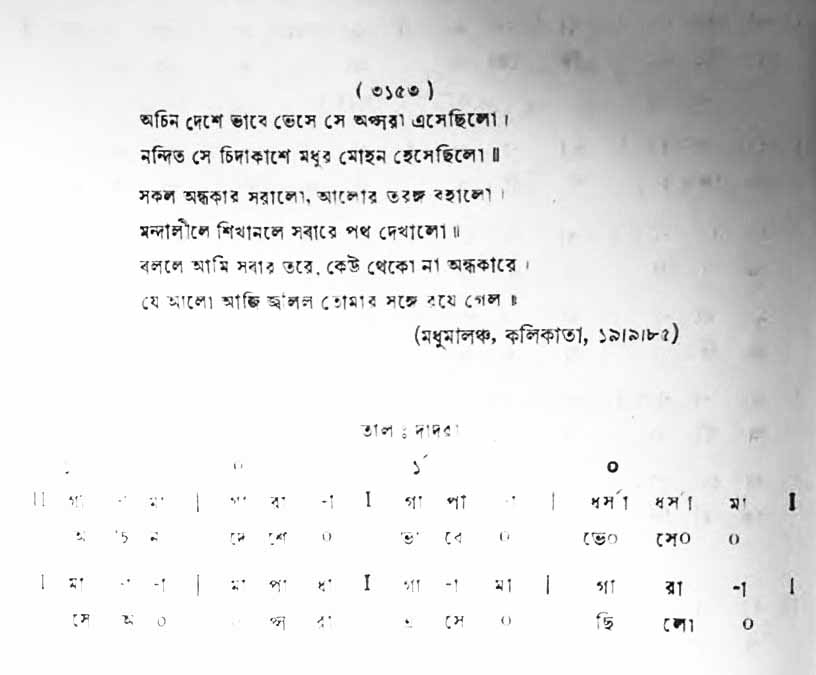 ( ৩১৫৩ )
অচিন দেশে ভাবে ভেসে সে অপ্সরা এসেছিলো ।
নন্দিত সে চিদাকাশে মধুর মোহন হেসেছিলো ॥
সকল অন্ধকার সরালো, আলোর তরঙ্গ বহালো ।
মন্দানীলে শিখানলে সবারে পথ দেখালো ॥
বললে আমি সবার তরে, কেউ থেকো না অন্ধকারে ।
যে আলো আজি জ্বালল তোমার সঙ্গে রযে গেল ॥
(মধুমালঞ্চ, কলিকাতা, ১৯।৯।৮৫)
তাল : দাদরা
০ ১´ ০
II গা -া মা | গা রা -া I গা পা -া | ধর্সা ধর্সা মা I
অ চি ন দে শে ০ ভা বে ০ ভে০ সে০ ০
I মা -া -া | মা পা ধা I গা -া মা | গা রা -া I
সে অ ০ প্স রা সে ০ ছি লো ০